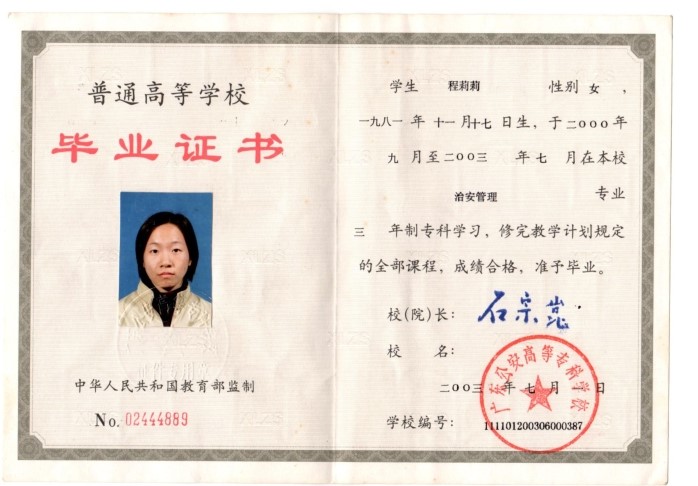 普通高等学校
毕业证书
中华人民共和国教育部监制
No. 02444889
学生 程莉莉 性别 女 ,
一九八一 年 十一 月 十七 日生，于 二〇〇〇 年
九 月至 二〇〇三 年 七 月在本校
治安管理 专业
三 年制专科学习，修完教学计划规定
的全部课程，成绩合格，准予毕业。
校(院)长: 石宗
校 名:
广东公安高等专科学校
二〇〇三 年 七 月 日
学校编号: 111101200306000387